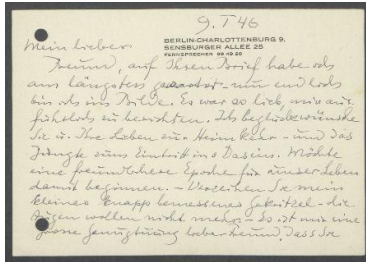 9. I 46
BERLIN-CHARLOTTENBURG 9,
SENSBURGER ALLEE 25
FERNSPRECHER 99 49 25
Mein lieber
Freund, auf Ihren Brief habe ich
am längsten gewartet - nun endlich
bin ich im Bilde. Es war so lieb, mir aus-
führlich zu berichten. Ich beglückwünsche
Sie u. Ihre Lieben zur Heimkehr - und das
Jüngste zum Eintritt ins Dasein. Möchte
eine freundlichere Epoche für unser Leben
damit beginnen. - Verzeihen Sie mein
kleines knapp bemessenes Gekritzel - die
Augen wollen nicht mehr - Es ist mir eine
grosse Genugtuung lieber Freund, dass Sie